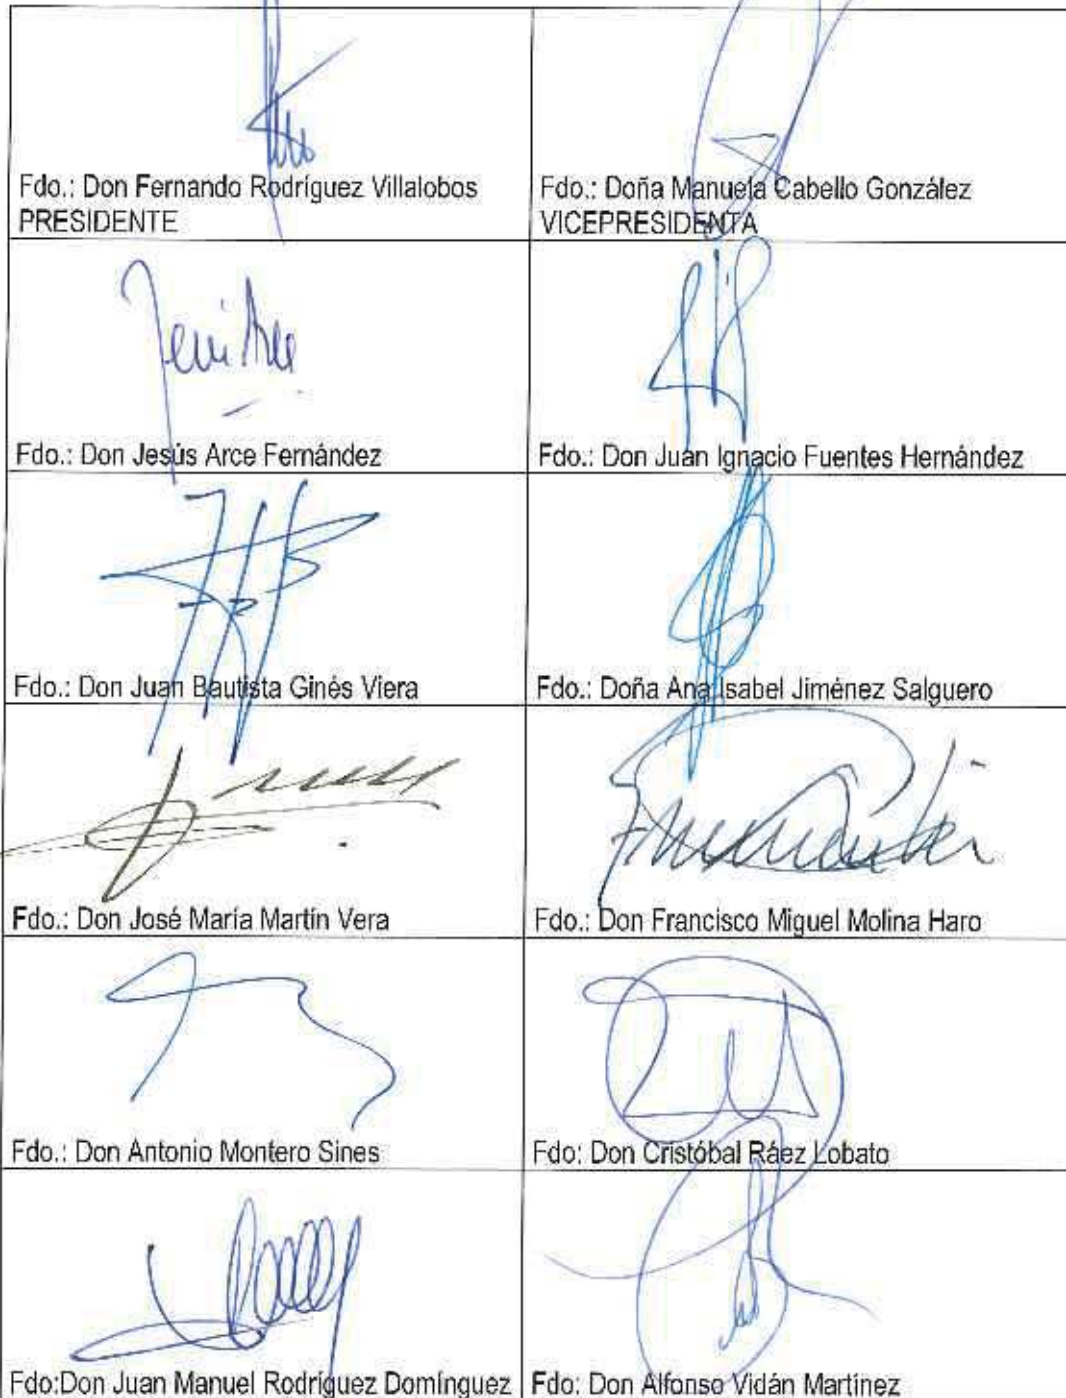 Fdo.: Don Fernando Rodríguez Villalobos
PRESIDENTE
Fdo.: Doña Manuela Cabello González
VICEPRESIDENTA
Fdo.: Don Jesús Arce Fernández
Fdo.: Don Juan Ignacio Fuentes Hernández
Fdo.: Don Juan Bautista Ginés Viera
Fdo.: Doña Ana Isabel Jiménez Salguero
Fdo.: Don José María Martín Vera
Fdo.: Don Francisco Miguel Molina Haro
Fdo.: Don Antonio Montero Sines
Fdo: Don Cristóbal Ráez Lobato
Fdo:Don Juan Manuel Rodríguez Domínguez
Fdo: Don Alfonso Vidán Martínez